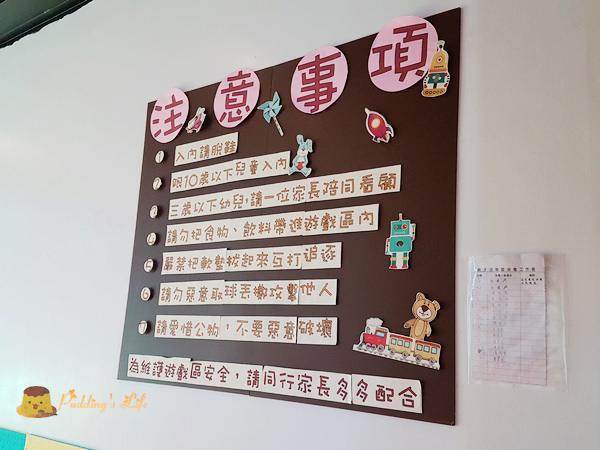 注意事項
1 入內請脫鞋
2 限10歲以下兒童入內
3 三歲以下幼兒,請一位家長陪同看顧
4 請勿把食物、飲料帶進遊戲區內
5 嚴禁把軟墊拔起來互打追逐
6 請勿惡意取球丟擲攻擊他人
7 請愛惜公物,不要惡意破壞
為維護遊戲區安全,請同行家長多多配合
Pudding's Life